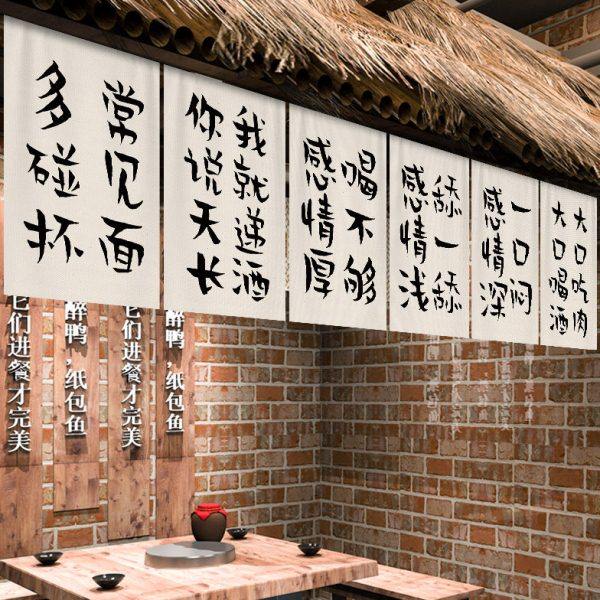 多碰杯
常见面
你说天长
我就递酒
感情厚
喝不够
感情浅
舔一舔
感情深
一口闷
大口喝酒
大口吃肉
们进餐才完美
醉鸭，纸包鱼
们进餐才完美
醉鸭，纸包鱼